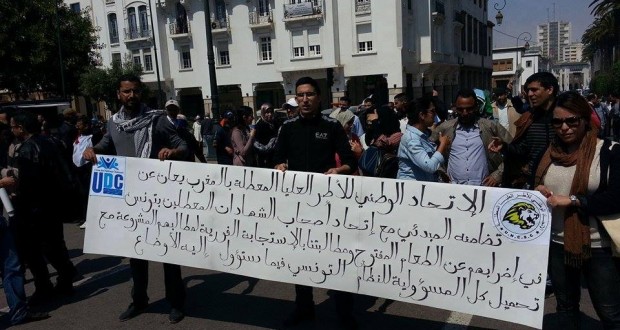 الإتحاد الوطني للأطر العليا المعطلة بالمغرب يعلن عن
تضامنه المبدئي مع إتحاد أصحاب الشهادات المعطلين بتونس
في إضرابهم عن الطعام المفتوح ومطالبتنا بالإستجابة الفورية لمطالبهم المشروعة مع
تحميل كل المسؤولية للنظام التونسي فيما ستؤول إليه الأوضاع
UDC